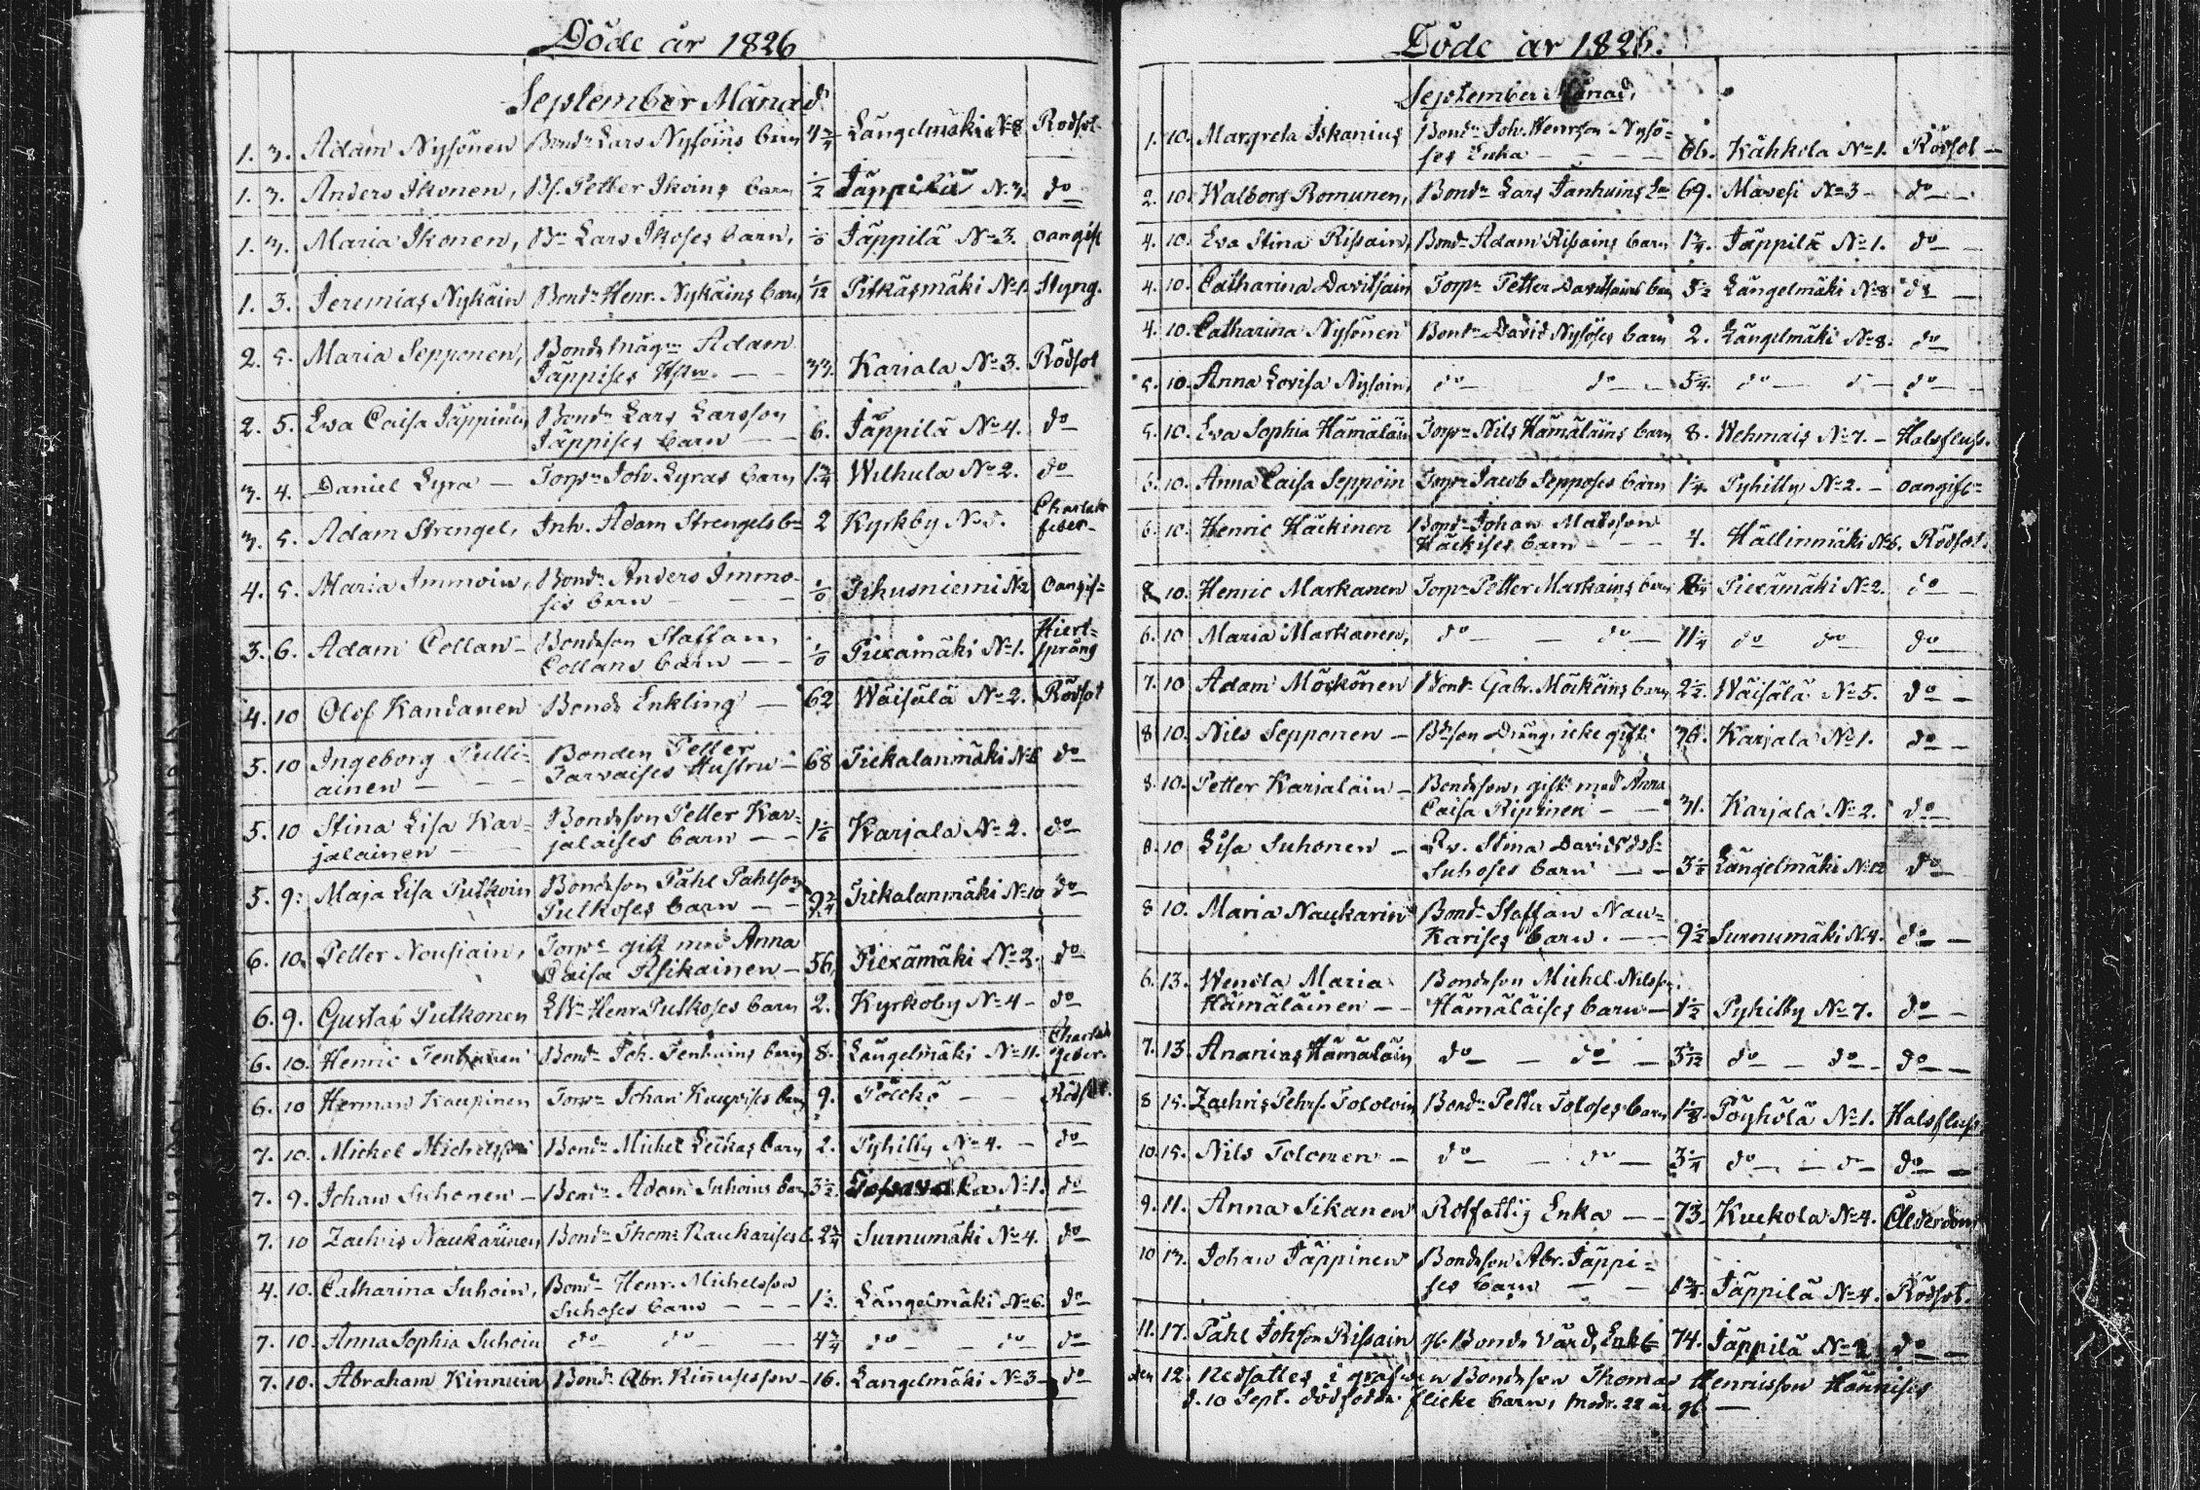 Döde år 1826
September Månad
1. 3. Adam Nysönen Bond: Lars Nysöins barn 4 3/4 Längelmäki N:8 Rödsot
1. 3. Anders Ikonen, Bs. Petter Ikoins barn 1/2 Jäppilä N:3. do
1. 3. Maria Ikonen, Bn Lars Ikoses barn, 1/0 Jäppilä N:3. oangift
1. 3. Jeremias Nykäin Bond: Henr. Nykäins barn 1/12 Pitkäsmäki N:1. Styng.
2. 5. Maria Sepponen, Bonds mågen Adam
Jäppises Hstru. — 33. Karjala N:3. Rödsot
2. 5. Ewa Caisa Jäppinen Bond: Lars Larsson
Jäppises barn — 6. Jäppilä N:4. do
3. 4. Daniel Lyra — Torp: Joh. Lyras barn 1 3/4 Wilhula N:2. do
3. 5. Adam Strengel, Inh. Adam Strengels bn 2 Kyrkby Charlak
feber
4. 5. Maria Immoin, Bond: Anders Immo-
ses barn — 1/0 Tihusniemi N:2 oangif=
3. 6. Adam Collan — Bondeson Staffan
Collans barn — 1/0 Piexämäki N:1. Hiert=
språng
4. 10 Olof Kandanen Bonde Enkling — 62 Wäisälä N:2. Rödsot
5. 10 Ingeborg Pulli= Bonden Petter
ainen — Tarvaises Hustru — 68 Tiekalanmäki N:6 do
5. 10 Stina Lisa Kar= Bondeson Petter Kar=
jalainen — jalaises barn — 1 1/6 Karjala N:2. do
5. 9. Maja Lisa Pulkoin Bondeson Påhl Pahlson
Pulkoses barn — 9 3/4 Tiekalanmäki N:10 do
6. 10. Petter Nousiain, Torp: gift med Anna
Caisa Asikainen — 56, Piexämäki N:2. do
6. 9. Gustaf Pulkonen Henr Pulkoses barn 2. Kyrkoby N:4 — do
6. 10. Henric Tenhunen Bond: Joh. Tenhuins barn 8. Längelmäki N:11. Charlak
feber
6. 10 Herman Kaupinen Torp: Johan Kaupises barn 9. Pölckö — Rödsot.
7. 10. Michel Michelsson Bond: Michel Leckas barn 2. Pyhitty N:4. — do
7. 9. Johan Suhonen — Bond: Adam Suhoins barn 3 1/2. N:1. do
7. 10 Zachris Naukarinen Bond: Thom: Naukarises b. 2 3/4 Surnumäki N:4. do
4. 10. Catharina Suhoin, Bond: Henr. Michelsson
Suhoses barn — 1 1/2. Längelmäki N:6. do
7. 10. Anna Sophia Suhoin do do — 4 3/4 do — do do
7. 10. Abraham Kinnuin Bond: Abr. Kinnuses son — 16. Langelmäki N:3 — do
Döde år 1826.
September Månad,
1. 10. Margreta Iskanius Bond: Joh. Henrson Nysö=
ses Enka — 66. Kähkola N:1. Rödsot —
2. 10. Walborg Romunen, Bond: Lars Janhuins En 69. Mavesi N:3 — do —
4. 10. Eva Stina Rissain, Bond: Adam Rissains barn 1 3/4. Jäppilä N:1. do —
4. 10. Catharina Davitsain Torp: Petter Davitsains barn 5 1/2 Längelmäki N:8 do —
4. 10. Catharina Nysönen Bond: David Nysöses barn 2. Längelmäki N:8. do
5. 10. Anna Lovisa Nysöin, do — do — 5 1/4. do — d — do —
5. 10. Eva Sophia Hämäläin Torp: Nils Hämäläins barn 8. Wehmais N:7. — Halsfluss.
6. 10. Anna Caisa Seppöin Torp: Jacob Sepposes barn 1 1/4. Pyhitty N:2. — oangift=
6. 10. Henric Häckinen Bond: Johan Matsson
Häckises barn — 4. Hällinmäki Rödsot.
8. 10. Henric Markanen Torp: Petter Markains barn Piexämäki N:2. do —
6. 10. Maria Markanen, do — do — 11 1/4 do do do
7. 10 Adam Möckönen Bond: Gabr. Möcköins barn 2 1/2. Wäisälä N:5. do —
8. 10. Nils Sepponen — Bdson Dräng icke gift: 36. Karjala N:1. do —
8. 10. Petter Karjalain — Bondeson, gift med Anna
Caisa Ripainen — 31. Karjala N:2. do —
8. 10. Lisa Suhonen — Stina Davidsd:
Suhoses barn — 3 1/2 Längelmäki N:12 do
8 10. Maria Naukarin Bond: Staffan Nau=
karises barn. — 9 1/2 Surnumäki N:4. do —
6. 13. Wendla Maria Bondeson Michel Nilsson
Hämäläinen — Hämäläises barn — 1 1/2 Pyhitty N:7. do —
7. 13. Ananias Hämäläin do — do — 3 3/12 do — do — do —
8 15. Zachris Pehrs. Tolovin Bond: Petter Toloses barn 1 1/8. Pöyhölä N:1. Halsfluss
10. 15. Nils Tolonen — do — do — 3 1/4 do — do — do —
9. 11. Anna Sikanen Rotfattig Enka — 73. Kuckola N:4. Ålderdom
10 13. Johan Jäppinen Bondeson Abr. Jäppi=
ses barn — 1 3/4. Jäppilä N:4. Rödsot.
11. 17. Påhl Johsson Rissain gl. Bonde Värd, Enkl: 74. Jäppilä N:2 do —
den 12. Nedsattes i grafwen Bondeson Thomas Henricsson Hännises
d. 10 Sept. dödfödda flicke barn, modr. 22 år gl. —